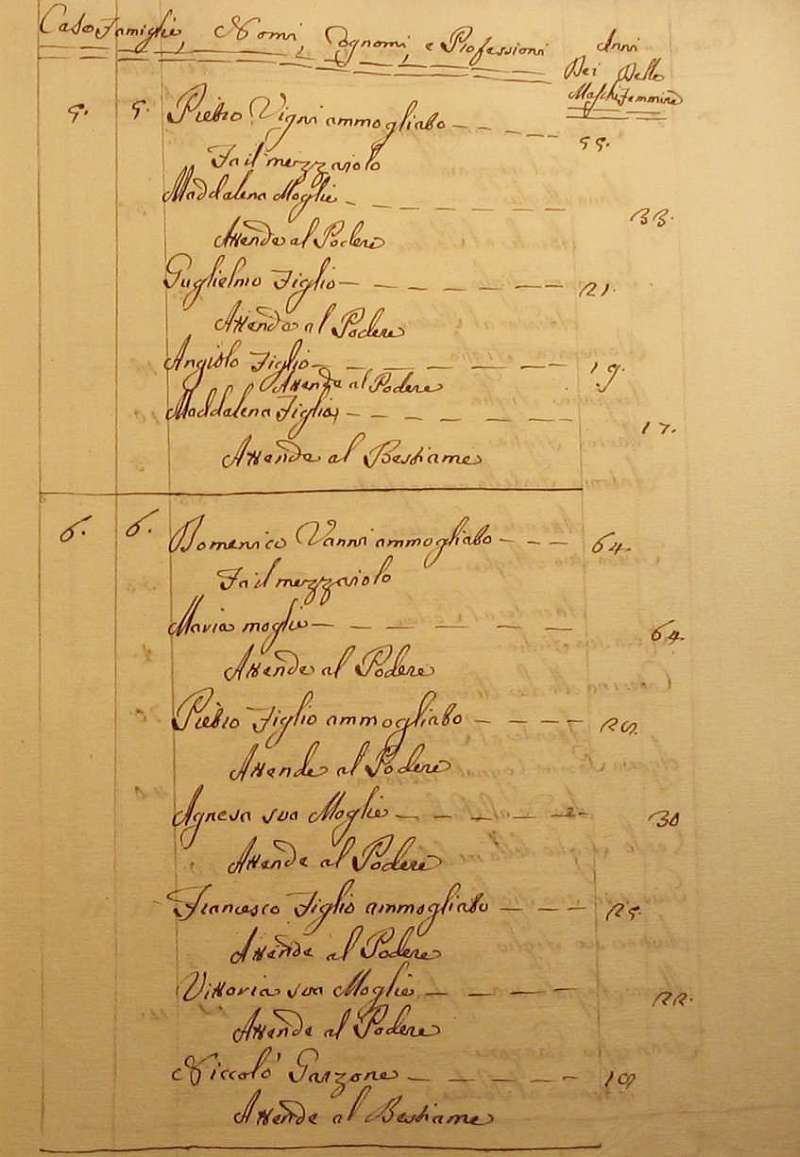 Case Famiglie, Nomi, Cognomi, e Professioni Anni
Dei Delle
Maschi Femmine
5. 5. Pietro Vigni ammogliato 55.
Fa il mezzaiolo
Maddalena Moglie 33.
Attende al Podere
Guglielmo Figlio 21.
Attende al Podere
Angiolo Figlio 19.
Attende al Podere
Maddalena Figlia 17.
Attende al Bestiame
6. 6. Domenico Vanni ammogliato 64.
Fa il mezzaiolo
Maria moglie 64.
Attende al Podere
Pietro Figlio ammogliato
Attende al Podere
Agnesa sua Moglie 30
Attende al Podere
Francesco Figlio ammogliato 25.
Attende al Podere
Vittoria sua Moglie 22.
Attende al Podere
Niccolò Garzone
Attende al Bestiame